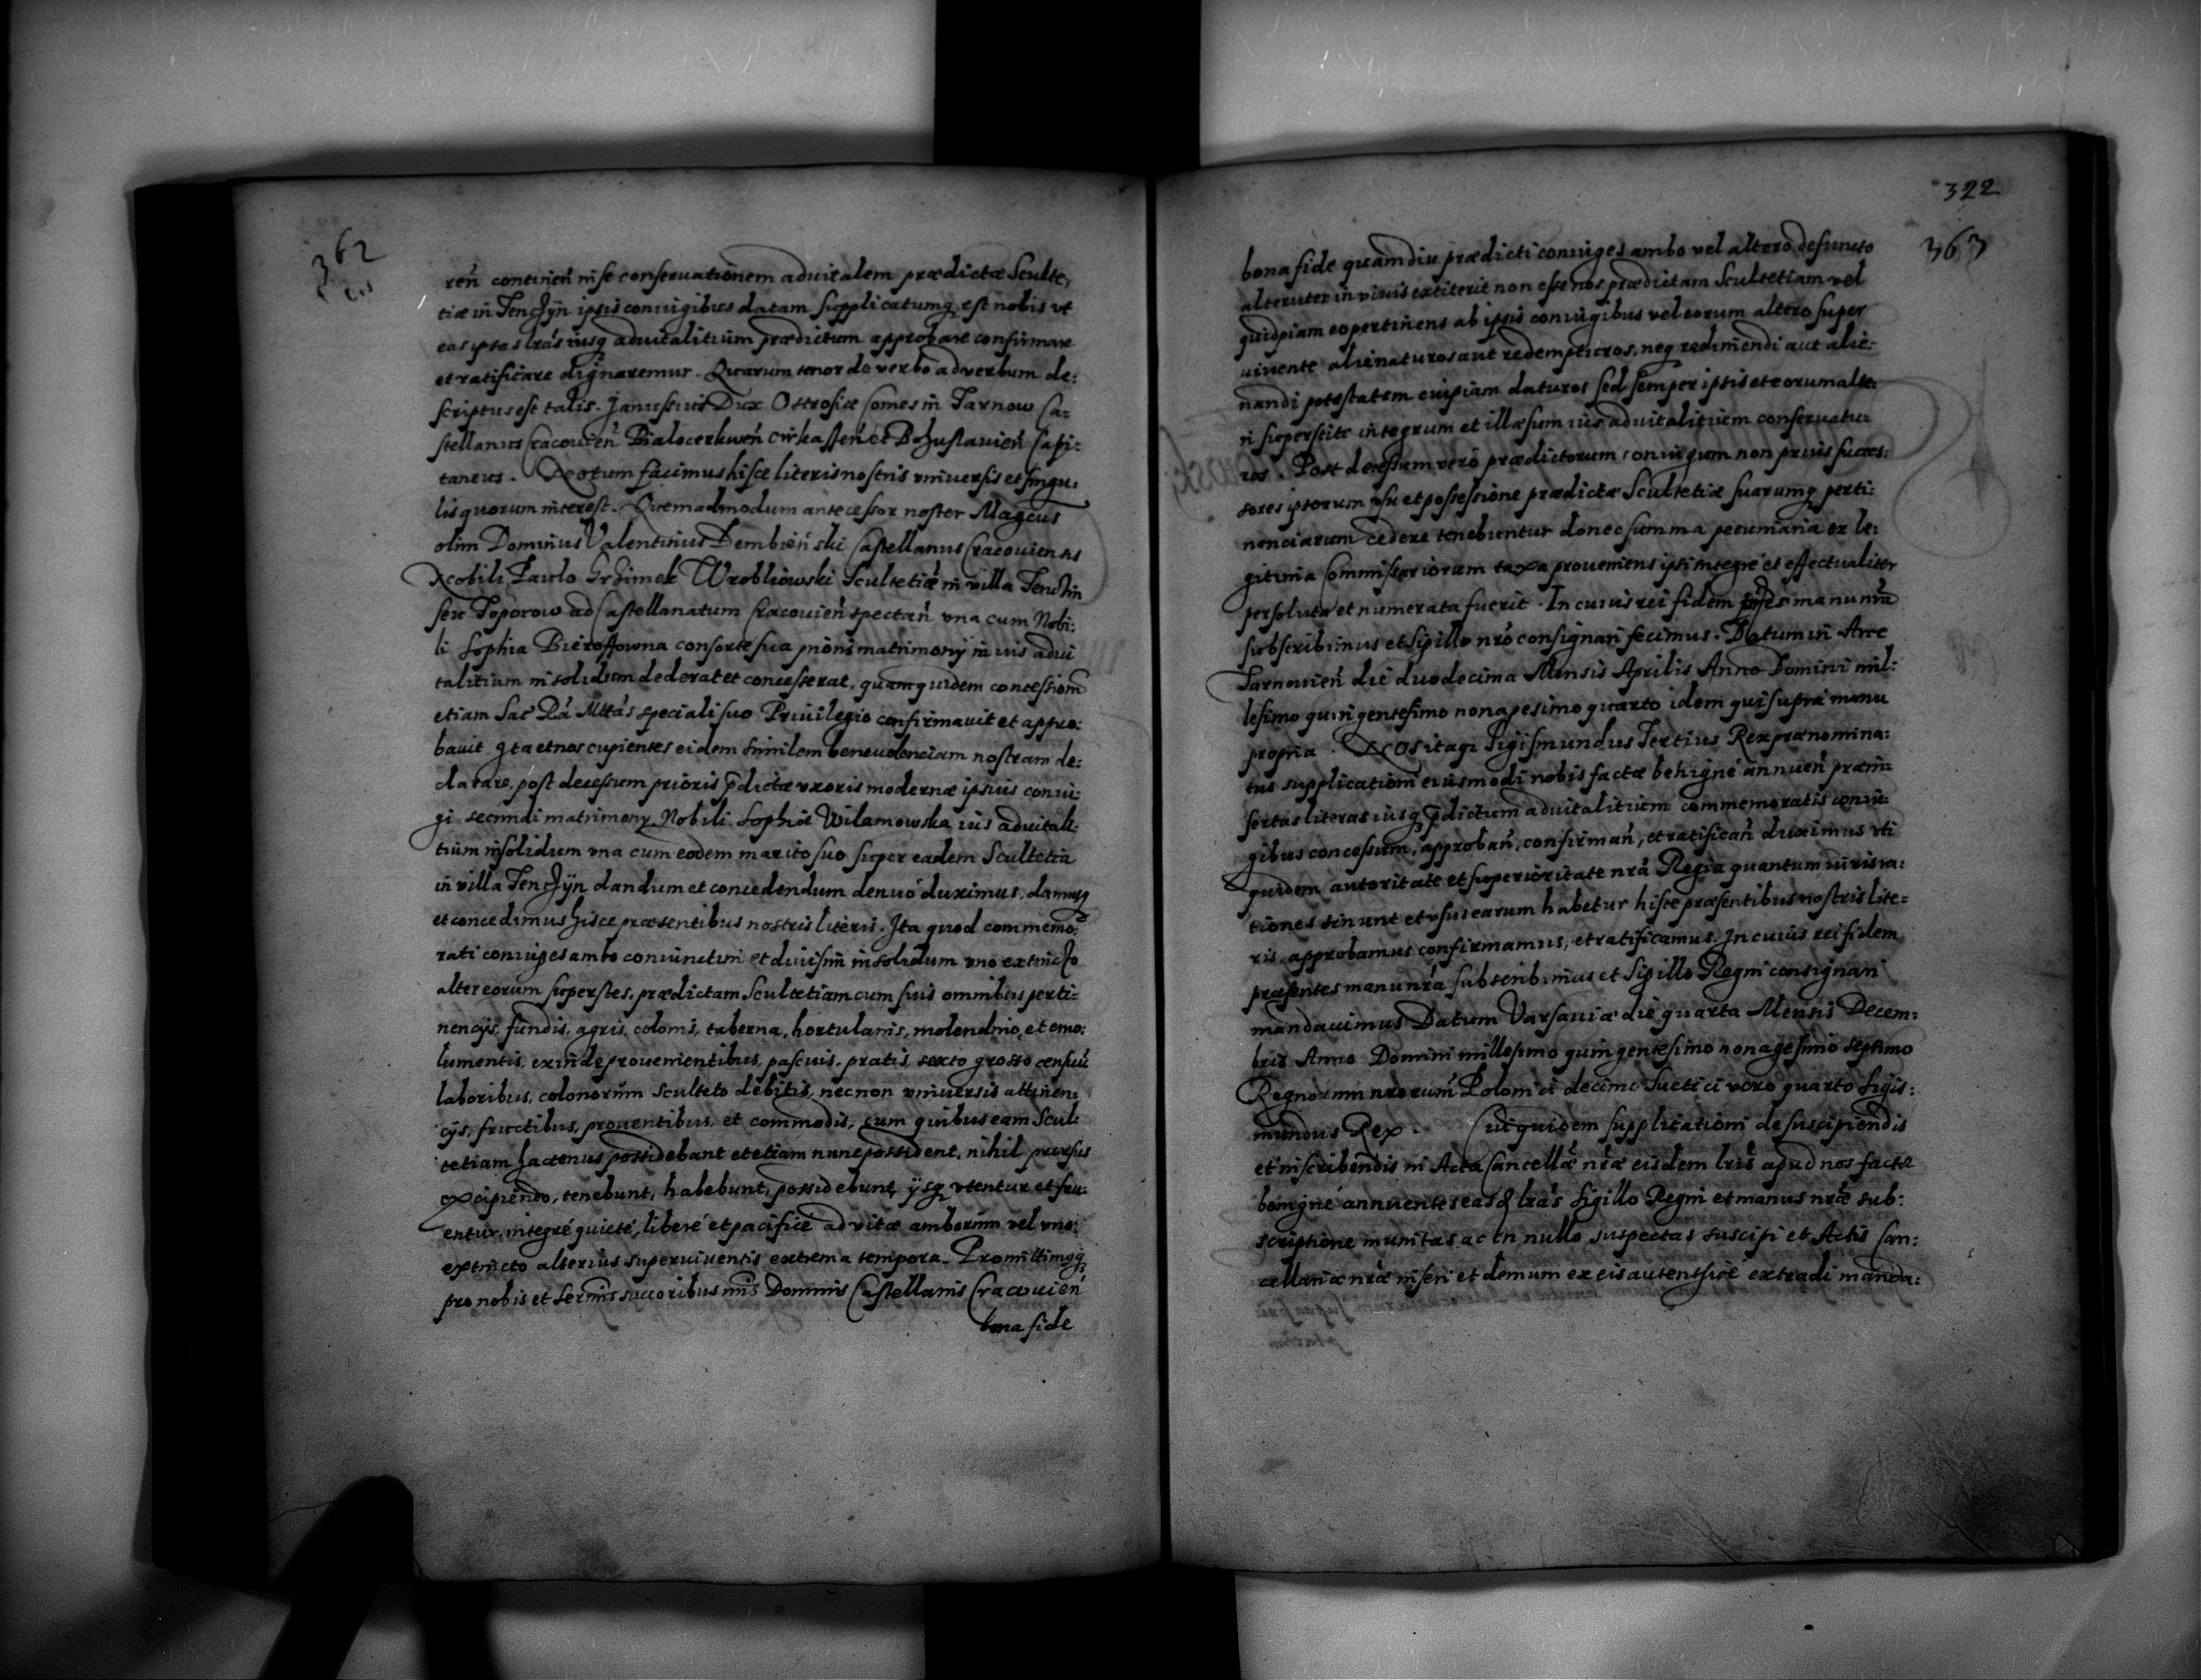 362
ren̄ continen̄ in se conseruationem aduitalem prædictæ Sculte,
tiæ in Tenchÿn ipsis coniugibus datam supplicatumq̨ est nobis vt
eas ipsas lrás iusq̨ aduitalitium prædictum approbare confirmare
et ratificare dignaremur. Quarum tenor de verbo ad verbum de:
scriptus est talis. Janussius Dux Ostrosiæ Comes in Tarnow Ca:
stellanus Cracouień Bialocerkweń Cirkasseń et Bohuslauień Capi:
taneus. Notum facimus hisce literis nostris vniuersis et singu:
lis quorum interest. Quemadmodum antecessor noster Magcus
olim Dominus Valentinus Dembieński Castellanus Cracouiensis
Nobili Paulo Grzimek Wrobliowski Scultetiæ in villa Tenchin
seu Toporow ad Castellanatum Cracouień spectań vna cum Nobi:
li Sophia Bieroffowna consorte sua prioris matrimonÿ in uis adui
talitium in solidum dederat et concesserat, quam quidem concessionē
etiam Sac̄ Rá Mttás speciali suo Priuilegio confirmauit et appro:
bauit. Ita et nos cupientes eidem similem beneuolenciam nostram de:
clarare, post decessum prioris p̄dictæ vxoris modernæ ipsius coniu:
gi secundi matrimony Nobili Sophiæ Wilamowska ius aduitali:
tium insolidum vna cum eodem marito suo super eadem Scultetia
in villa Tenchÿn dandum et concedendum denuó duximus. damusq̨
et concedimus hisce præsentibus nostris literis. Ita quod commemo:
rati coniuges ambo coniunctim et diuisim in solidum vno extincto
alter eorum superstes, prædictam Scultetiam cum suis omnibus perti:
nencÿs, fundis, agris, colonis, taberna, hortulanis, molendino, et emo:
lumentis, exinde prouenientibus, pascuis, pratis, sexto grosso censuū
laboribus, colonorúm Sculteto debitis, necnon vniuersis attinen:
cÿs, fructibus, prouentibus, et commodis, cum quibus eam Scul:
tetiam hactenus possidebant et etiam nunc possident, nihil prorsus
excipiendo, tenebunt, habebunt, possidebunt, ÿsq̨ vtentur et fru:
entur, integré quieté, liberé et pacificé ad vitæ amborúm vel vno:
extincto alterius superuiuentis extrema tempora. Promittimq̨q̨
pro nobis et Sermis succoribus nris Dominis Castellanis Cracouień
bona fide
322
363
bona fide quamdiu prædicti coniuges ambo vel altero defuncto
alteruter in viuis extiterit non esse nos prædictam Scultetiam vel
quidpiam eo pertinens ab ipsis coniugibus vel eorum altero super
uiuente alienaturos aut redempturos, neq̨ redimendi aut alie:
nandi potestatem cuipiam daturos sed semper ipsis et eorum alte:
ri superstite integrum et illæsum ius aduitalitium conseruatu:
ros. Post decessum veró prædictorum coniugum non prius succes:
sores ipsorum vsu et possessione prædictæ Scultetiæ suarumq̨ perti:
nenciarum cedere tenebuntur donec summa pecuniaria ex le:
gitima Commissariorum taxa proueniens ipsi integré et effectualiter
persoluta et numerata fuerit. In cuius rei fidem pñtes manu nrā
subscribimus et sigillo nro consignari fecimus. Datum in Arce
Tarnouień die duodecima Mensis Aprilis Anno Domini mil:
lesimo quingentesimo nonagesimo quarto idem qui supra manu
propria. Nos itaq̨ Sigismundus Tertius Rex prænomina:
tus supplicationi eiusmodi nobis factæ benigné annueń præin:
sertas literas iusq̨ p̄dictum aduitalitium commemoratis coniu:
gibus concessum, approbań, confirmań, et ratificań duximus vti
quidem autoritate et superioritate nrā Regia quantum iuris ra:
tiones sinunt et vsus earum habetur hisce præsentibus nostris lite=
ris approbamus confirmamus, et ratificamus. In cuius rei fidem
præsentes manu nrá subscribimus et Sigillo Regni consignari
mandauimus Datum Varsauiæ die quarta Mensis Decem:
bris Anno Domini millesimo quingentesimo nonagesimo septimo
Regnorum nrorum Poloniæ decimo Suetici vero quarto Sigis:
mundus Rex. Cui quidem supplicationi de suscipiendis
et inscribendis in Acta Cancellæ nræ eisdem lris apud nos factæ
benigné annuentes eas q̨ lrás Sigillo Regni et manus nræ sub:
scriptione munitas ac in nullo suspectas suscipi et Actis Can:
cellariæ nræ inseri et demum ex eis autenticé extradi manda: